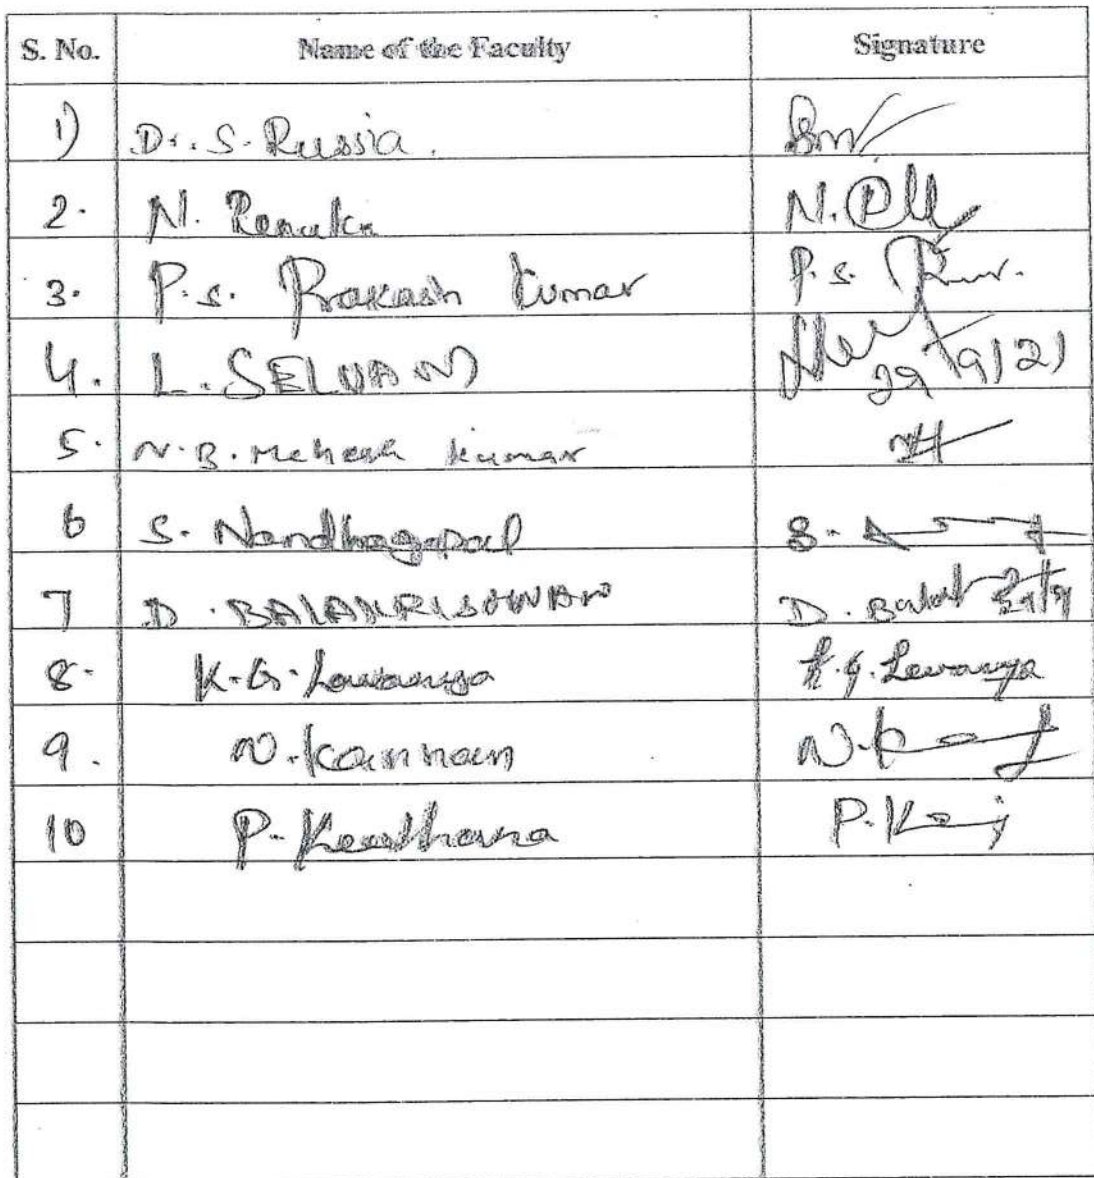 S. No. Name of the Faculty Signature
1) Dr. S. Russia.
2. N. Renuka N.
3. P.S. Prakash Kumar P.S.
4. L. SELVAN 29/9/21
5. N.B. Mahesh Kumar
6 S. Nandhagopal S.
7 D. BALAKRISHNAN D.
8. K.G. Lavanya K.G. Lavanya
9. N. Kannan N.
10 P. Keerthana P.